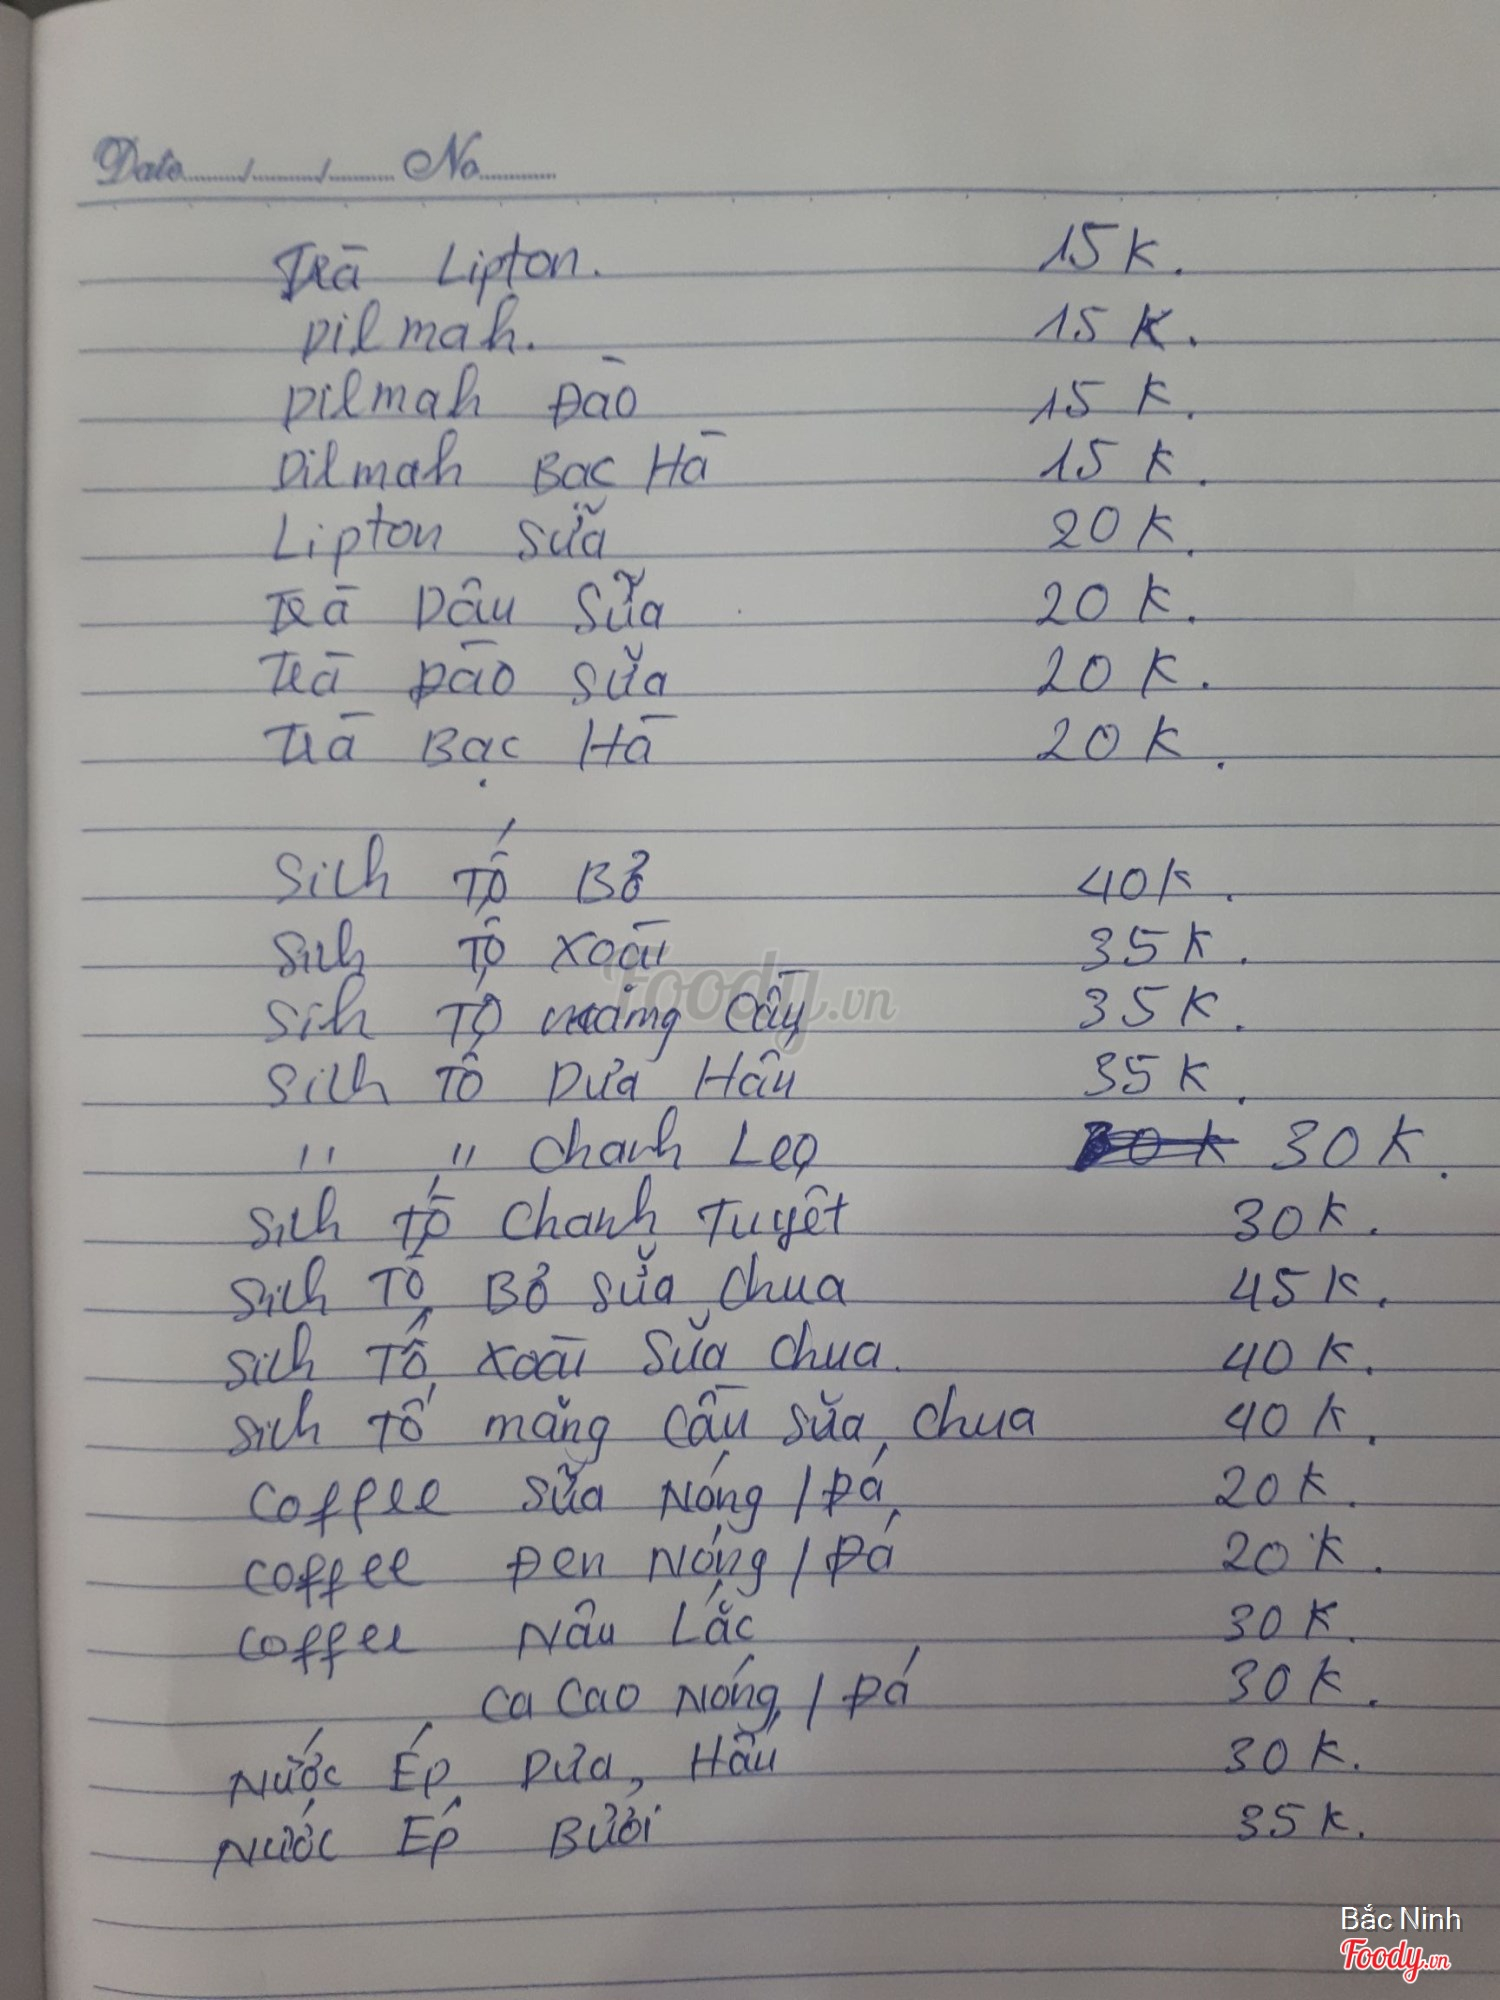 Date......../......../........ No.........
Trà Lipton. 15K.
Dilmah. 15K.
Dilmah Đào 15K.
Dilmah Bạc Hà 15K.
Lipton Sữa 20K.
Trà Dâu Sữa 20K.
Trà Đào Sữa 20K.
Trà Bạc Hà 20K.
Sich Tố Bơ 40K.
Sich Tố Xoài 35K.
Sich Tố mãng Cầu 35K.
Sich Tố Dưa Hấu 35K.
" " Chanh Leo 30K.
Sich Tố Chanh Tuyết 30K.
Sich Tố Bơ Sữa Chua 45K.
Sich Tố Xoài Sữa Chua. 40K.
Sich Tố mãng Cầu Sữa Chua 40K.
Coffee Sữa Nóng / Đá 20K.
Coffee Đen Nóng / Đá 20K.
Coffee Nâu Lắc 30K.
Ca Cao Nóng / Đá 30K.
Nước Ép Dưa Hấu 30K.
Nước Ép Bưởi 35K.
Foody.vn
Bắc Ninh
Foody.vn